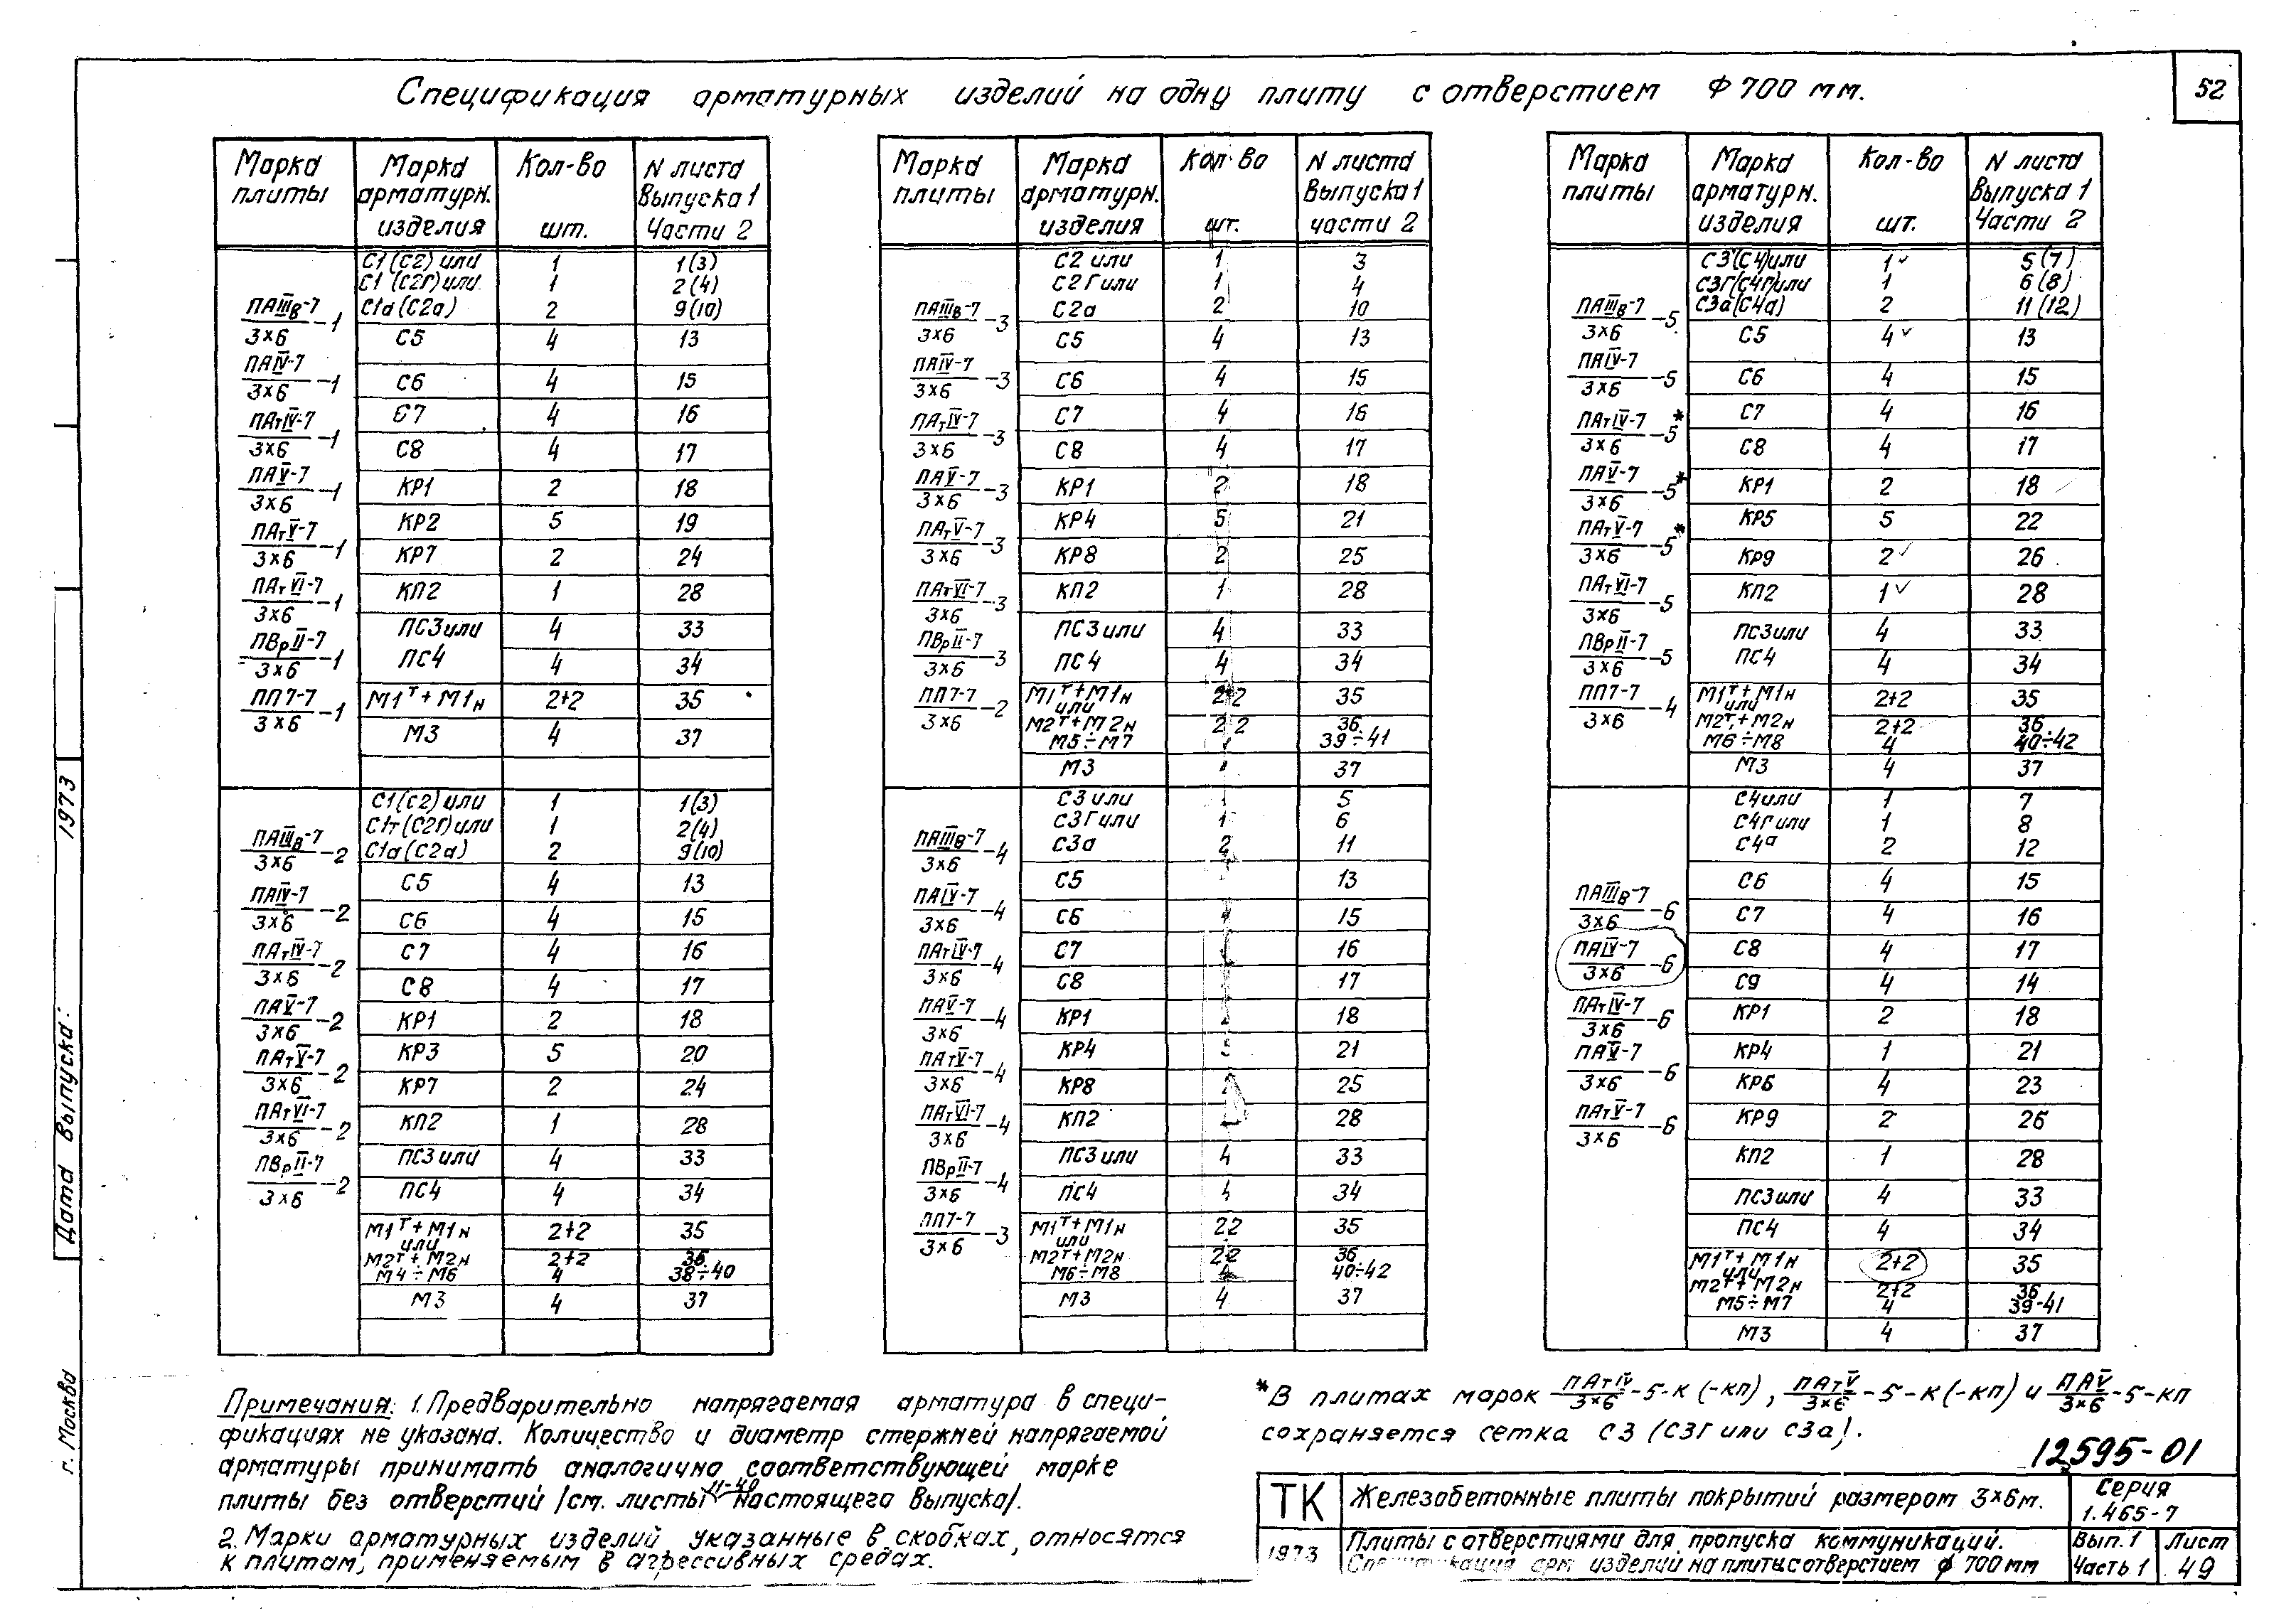 52
Спецификация арматурных изделий на одну плиту с отверстием Ф 700 мм.
Марка плиты | Марка арматурн. изделия | Кол-во шт. | N листа Выпуска 1 Части 2
ПАIIIв-7/3×6 -1
ПАIV-7/3×6 -1
ПАтIV-7/3×6 -1
ПАV-7/3×6 -1
ПАтV-7/3×6 -1
ПАтVI-7/3×6 -1
ПВрII-7/3×6 -1
ПП7-7/3×6 -1
С1(С2) или | 1 | 1(3)
С1(С2Г) или | 1 | 2(4)
С1а(С2а) | 2 | 9(10)
С5 | 4 | 13
С6 | 4 | 15
С7 | 4 | 16
С8 | 4 | 17
КР1 | 2 | 18
КР2 | 5 | 19
КР7 | 2 | 24
КП2 | 1 | 28
ПС3 или | 4 | 33
ПС4 | 4 | 34
М1т+М1н | 2+2 | 35
М3 | 4 | 37
ПАIIIв-7/3×6 -2
ПАIV-7/3×6 -2
ПАтIV-7/3×6 -2
ПАV-7/3×6 -2
ПАтV-7/3×6 -2
ПАтVI-7/3×6 -2
ПВрII-7/3×6 -2
С1(С2) или | 1 | 1(3)
С1т(С2Г) или | 1 | 2(4)
С1а(С2а) | 2 | 9(10)
С5 | 4 | 13
С6 | 4 | 15
С7 | 4 | 16
С8 | 4 | 17
КР1 | 2 | 18
КР3 | 5 | 20
КР7 | 2 | 24
КП2 | 1 | 28
ПС3 или | 4 | 33
ПС4 | 4 | 34
М1т+М1н | 2+2 | 35
или
М2т+М2н | 2+2 | 36
М4÷М6 | 4 | 38÷40
М3 | 4 | 37
Марка плиты | Марка арматурн. изделия | Кол во шт. | N листа Выпуска 1 части 2
ПАIIIв-7/3×6 -3
ПАIV-7/3×6 -3
ПАтIV-7/3×6 -3
ПАV-7/3×6 -3
ПАтV-7/3×6 -3
ПАтVI-7/3×6 -3
ПВрII-7/3×6 -3
ПП7-7/3×6 -2
С2 или | 1 | 3
С2Г или | 1 | 4
С2а | 2 | 10
С5 | 4 | 13
С6 | 4 | 15
С7 | 4 | 16
С8 | 4 | 17
КР1 | 2 | 18
КР4 | 5 | 21
КР8 | 2 | 25
КП2 | 1 | 28
ПС3 или | 4 | 33
ПС4 | 4 | 34
М1т+М1н | 2+2 | 35
или
М2т+М2н | 2 2 | 36
М5÷М7 | 39÷41
М3 | 37
ПАIIIв-7/3×6 -4
ПАIV-7/3×6 -4
ПАтIV-7/3×6 -4
ПАV-7/3×6 -4
ПАтV-7/3×6 -4
ПАтVI-7/3×6 -4
ПВрII-7/3×6 -4
ПП7-7/3×6 -3
С3 или | 1 | 5
С3Г или | 1 | 6
С3а | 2 | 11
С5 | 13
С6 | 15
С7 | 16
С8 | 17
КР1 | 18
КР4 | 5 | 21
КР8 | 25
КП2 | 28
ПС3 или | 4 | 33
ПС4 | 4 | 34
М1т+М1н | 22 | 35
или
М2т+М2н | 22 | 36
М6÷М8 | 4 | 40÷42
М3 | 4 | 37
Марка плиты | Марка арматурн. изделия | Кол-во шт. | N листа Выпуска 1 Части 2
ПАIIIв-7/3×6 -5
ПАIV-7/3×6 -5
ПАтIV-7/3×6 -5*
ПАV-7/3×6 -5*
ПАтV-7/3×6 -5*
ПАтVI-7/3×6 -5
ПВрII-7/3×6 -5
ПП7-7/3×6 -4
С3(С4) или | 1 | 5(7)
С3Г(С4Г) или | 1 | 6(8)
С3а(С4а) | 2 | 11(12)
С5 | 4 | 13
С6 | 4 | 15
С7 | 4 | 16
С8 | 4 | 17
КР1 | 2 | 18
КР5 | 5 | 22
КР9 | 2 | 26
КП2 | 1 | 28
ПС3 или | 4 | 33
ПС4 | 4 | 34
М1т+М1н | 2+2 | 35
или
М2т+М2н | 2+2 | 36
М6÷М8 | 4 | 40÷42
М3 | 4 | 37
ПАIIIв-7/3×6 -6
ПАIV-7/3×6 -6
ПАтIV-7/3×6 -6
ПАV-7/3×6 -6
ПАтV-7/3×6 -6
С4 или | 1 | 7
С4Г или | 1 | 8
С4а | 2 | 12
С6 | 4 | 15
С7 | 4 | 16
С8 | 4 | 17
С9 | 4 | 14
КР1 | 2 | 18
КР4 | 1 | 21
КР6 | 4 | 23
КР9 | 2 | 26
КП2 | 1 | 28
ПС3 или | 4 | 33
ПС4 | 4 | 34
М1т+М1н | 2+2 | 35
или
М2т+М2н | 2+2 | 36
М5÷М7 | 4 | 39-41
М3 | 4 | 37
Примечания: 1. Предварительно напрягаемая арматура в специ-
фикациях не указана. Количество и диаметр стержней напрягаемой
арматуры принимать аналогично соответствующей марке
плиты без отверстий /см. листы 11-40 настоящего выпуска/.
2. Марки арматурных изделий, указанные в скобках, относятся
к плитам, применяемым в агрессивных средах.
*В плитах марок ПАтIV/3×6 -5-К(-КП), ПАтV/3×6 -5-К(-КП) и ПАV/3×6 -5-КП
сохраняется сетка С3 (С3Г или С3а).
12595-01
ТК
1973
Железобетонные плиты покрытий размером 3×6м.
Плиты с отверстиями для пропуска коммуникаций.
Спецификация арм. изделий на плиты с отверстием ф 700 мм
Серия
1.465-7
Вып. 1
Часть 1
Лист
49
Дата выпуска: 1973
г. Москва